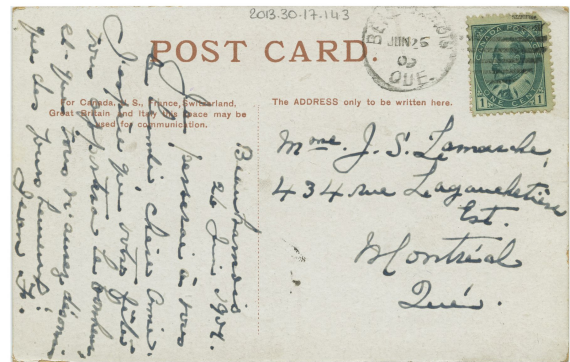 2013.30.17.143
POST CARD.
BEAUHARNOIS
JUN 26
09
QUE.
CANADA POSTAGE
1 ONE CENT 1
For Canada, U.S., France, Switzerland,
Great Britain and Italy this space may be
used for communication.
The ADDRESS only to be written here.
Beauharnois
26 Juin 1909.
Je penserai à vous
chère Amie.
J'espère que votre fête
vous apportera le bonheur
et que vous n'aurez désormais
que des jours heureux.
Mme. J. S. Lamarche,
434 rue Lagauchetière
Est.
Montréal
Qué.